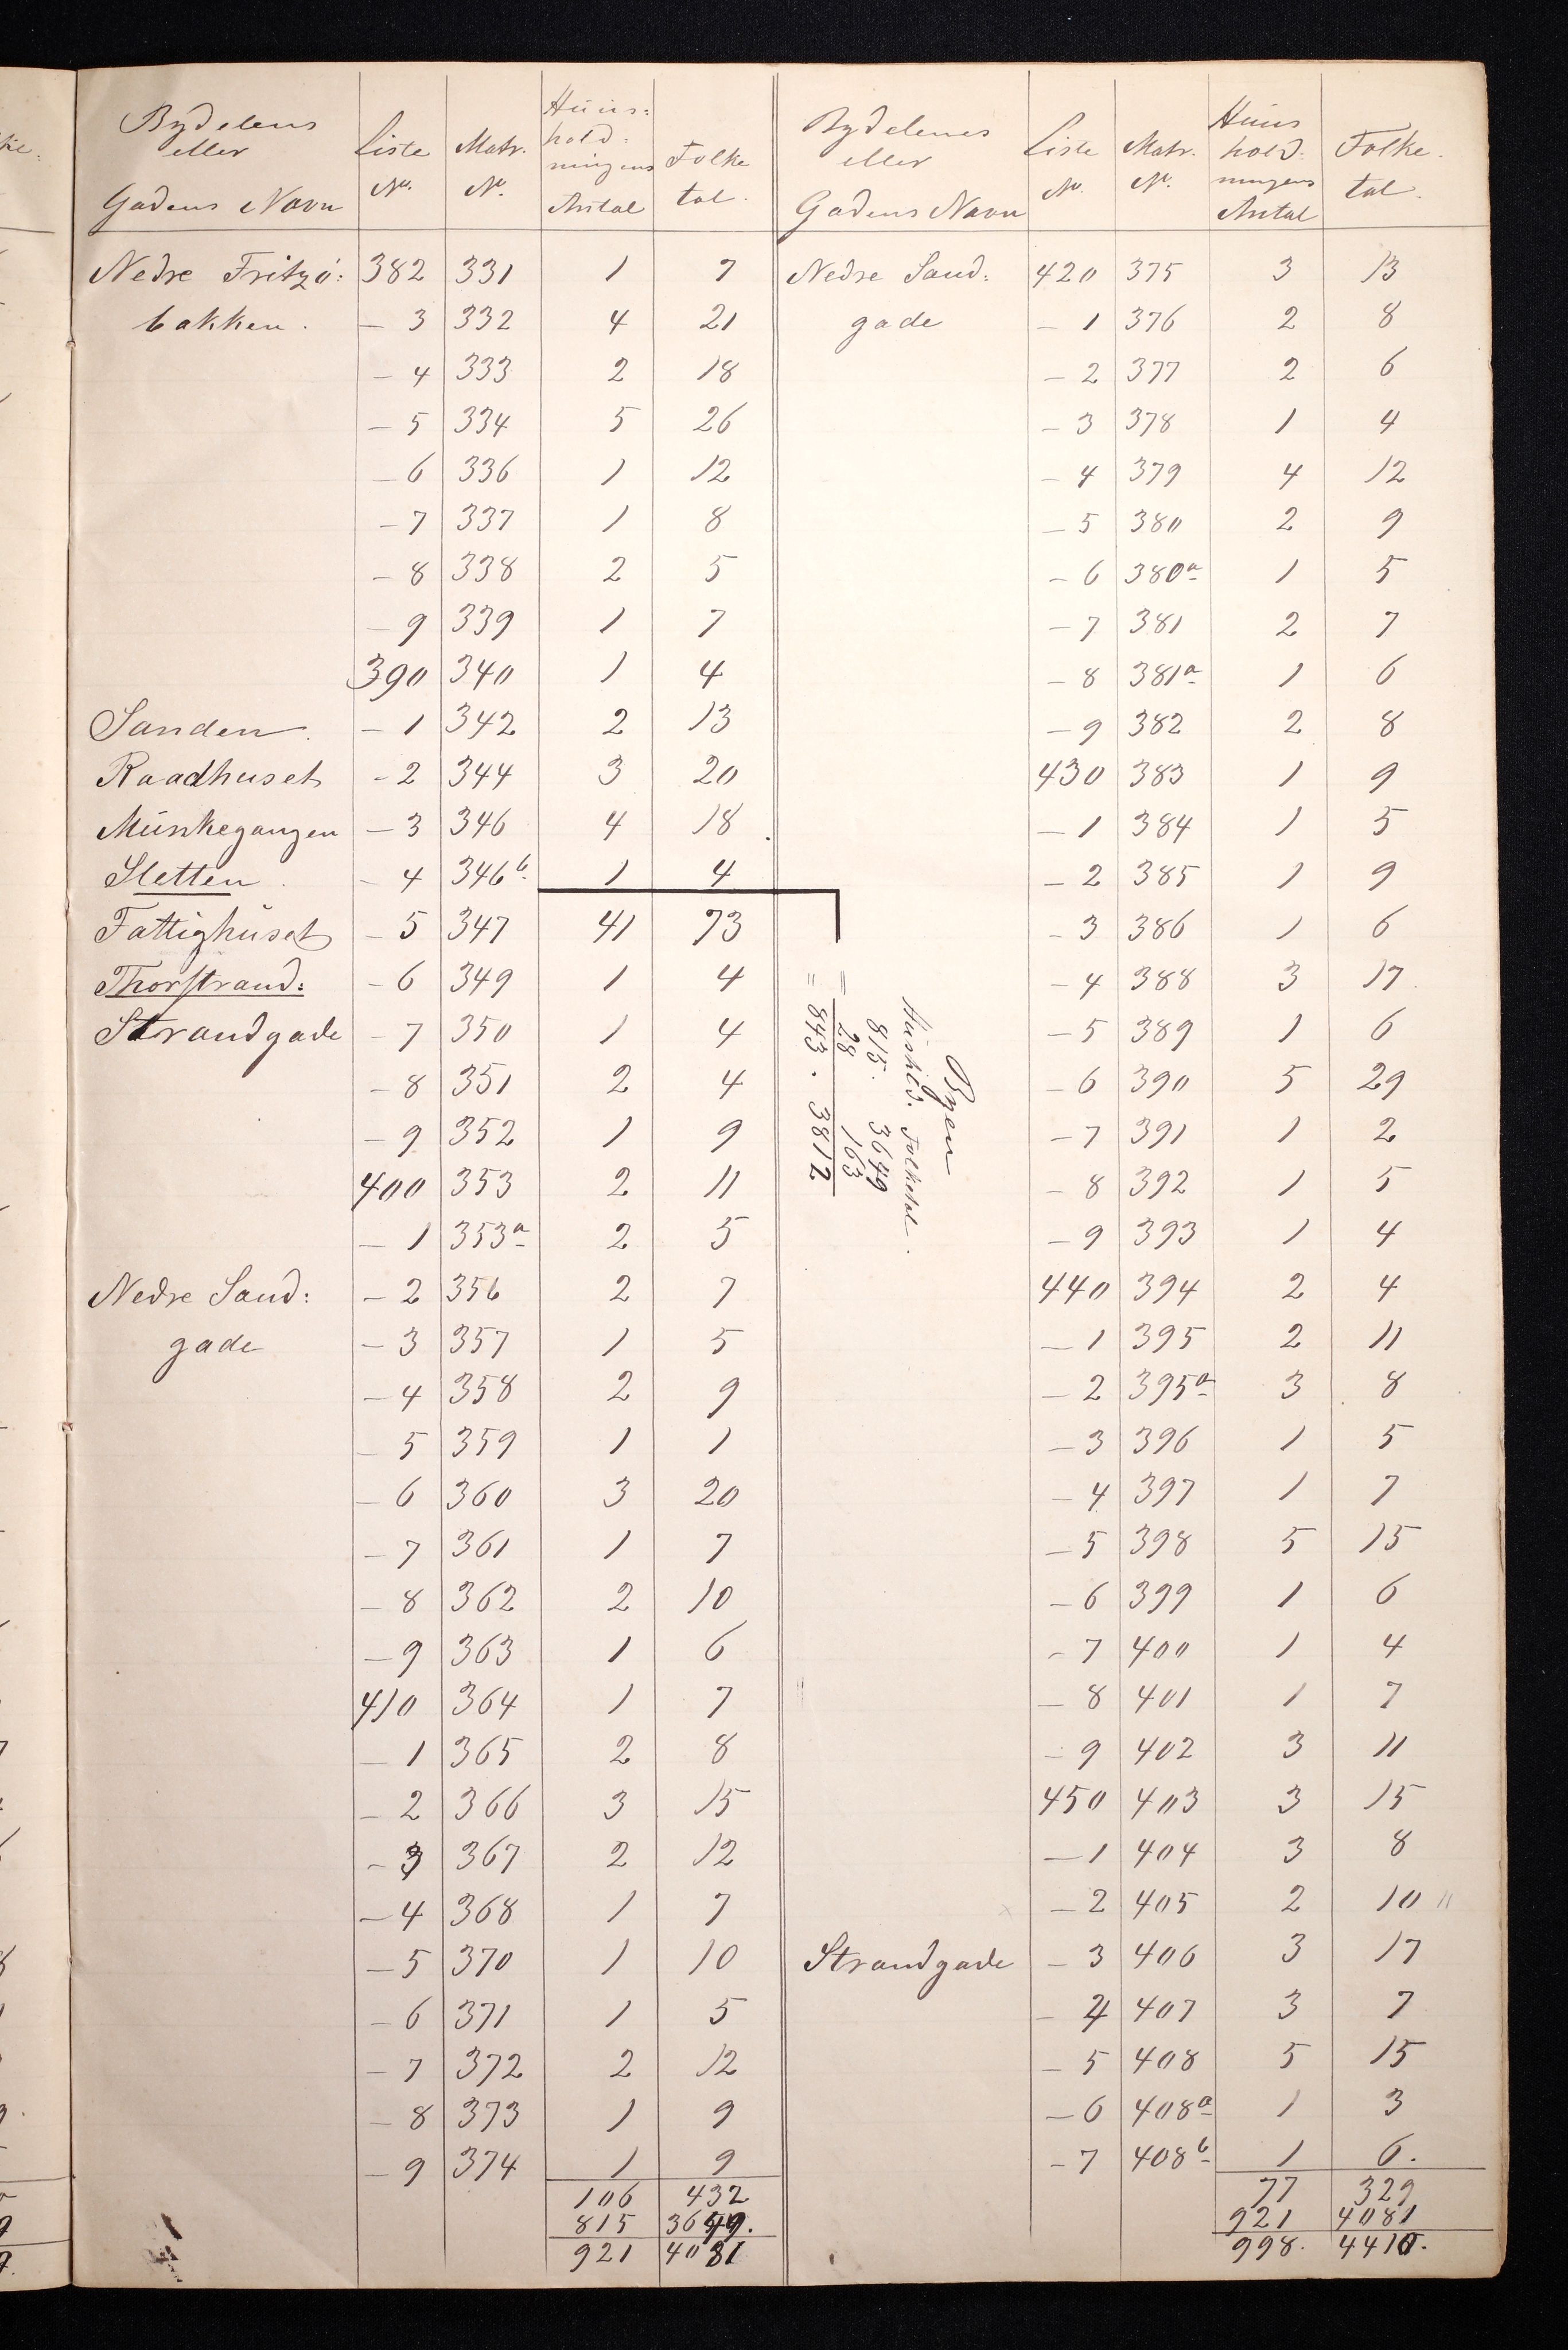 Bydelens eller Gadens Navn | Liste No. | Matr. No. | Huus=hold=ningens Antal | Folke tal.
Nedre Fritzö= | 382 | 331 | 1 | 7
bakken. | – 3 | 332 | 4 | 21
– 4 | 333 | 2 | 18
– 5 | 334 | 5 | 26
– 6 | 336 | 1 | 12
– 7 | 337 | 1 | 8
– 8 | 338 | 2 | 5
– 9 | 339 | 1 | 7
390 | 340 | 1 | 4
Sanden. | – 1 | 342 | 2 | 13
Raadhuset | – 2 | 344 | 3 | 20
Munkegangen | – 3 | 346 | 4 | 18.
Sletten. | – 4 | 346 b | 1 | 4
Fattighuset | – 5 | 347 | 41 | 73
Thorstrand: | – 6 | 349 | 1 | 4
Strandgade | – 7 | 350 | 1 | 4
– 8 | 351 | 2 | 4
– 9 | 352 | 1 | 9
400 | 353 | 2 | 11
– 1 | 353 a | 2 | 5
Nedre Sand= | – 2 | 356 | 2 | 7
gade | – 3 | 357 | 1 | 5
– 4 | 358 | 2 | 9
– 5 | 359 | 1 | 1
– 6 | 360 | 3 | 20
– 7 | 361 | 1 | 7
– 8 | 362 | 2 | 10
– 9 | 363 | 1 | 6
410 | 364 | 1 | 7
– 1 | 365 | 2 | 8
– 2 | 366 | 3 | 15
– 3 | 367 | 2 | 12
– 4 | 368 | 1 | 7
– 5 | 370 | 1 | 10
– 6 | 371 | 1 | 5
– 7 | 372 | 2 | 12
– 8 | 373 | 1 | 9
– 9 | 374 | 1 | 9
106 | 432
815 | 3649.
921 | 4081
Byen
Hushld. Folketal.
815. 3649
= 28 163
= 843. 3812
Bydelenes eller Gadens Navn | Liste No. | Matr. No. | Huus hold=ningens Antal | Folke tal.
Nedre Sand= | 420 | 375 | 3 | 13
gade | – 1 | 376 | 2 | 8
– 2 | 377 | 2 | 6
– 3 | 378 | 1 | 4
– 4 | 379 | 4 | 12
– 5 | 380 | 2 | 9
– 6 | 380 a | 1 | 5
– 7 | 381 | 2 | 7
– 8 | 381 a | 1 | 6
– 9 | 382 | 2 | 8
430 | 383 | 1 | 9
– 1 | 384 | 1 | 5
– 2 | 385 | 1 | 9
– 3 | 386 | 1 | 6
– 4 | 388 | 3 | 17.
– 5 | 389 | 1 | 6
– 6 | 390 | 5 | 29
– 7 | 391 | 1 | 2
– 8 | 392 | 1 | 5
– 9 | 393 | 1 | 4
440 | 394 | 2 | 4
– 1 | 395 | 2 | 11
– 2 | 395 a | 3 | 8
– 3 | 396 | 1 | 5
– 4 | 397 | 1 | 7
– 5 | 398 | 5 | 15
– 6 | 399 | 1 | 6
– 7 | 400 | 1 | 4
– 8 | 401 | 1 | 7
– 9 | 402 | 3 | 11
450 | 403 | 3 | 15
– 1 | 404 | 3 | 8
– 2 | 405 | 2 | 10 "
Strandgade | – 3 | 406 | 3 | 17
– 4 | 407 | 3 | 7
– 5 | 408 | 5 | 15
– 6 | 408 a | 1 | 3
– 7 | 408 b | 1 | 6.
77 | 329
921 | 4081
998. | 4410.